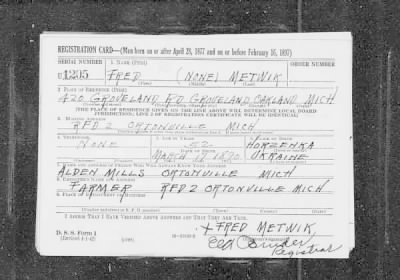 REGISTRATION CARD—(Men born on or after April 28, 1877 and on or before February 16, 1897)
SERIAL NUMBER 1. NAME (Print) ORDER NUMBER
U1295 FRED (NONE) METWIK
(First) (Middle) (Last)
2. PLACE OF RESIDENCE (Print)
420 GROVELAND RD GROVELAND OAKLAND MICH
[THE PLACE OF RESIDENCE GIVEN ON THE LINE ABOVE WILL DETERMINE LOCAL BOARD
JURISDICTION; LINE 2 OF REGISTRATION CERTIFICATE WILL BE IDENTICAL]
3. MAILING ADDRESS
RFD 2 ORTONVILLE MICH
4. TELEPHONE 5. AGE IN YEARS 6. PLACE OF BIRTH
NONE 52 HORZENKA
DATE OF BIRTH
MARCH 17 1890 UKRAINE
7. NAME AND ADDRESS OF PERSON WHO WILL ALWAYS KNOW YOUR ADDRESS
ALDEN MILLS ORTONVILLE MICH
8. EMPLOYER'S NAME AND ADDRESS
FARMER RFD 2 ORTONVILLE MICH
9. PLACE OF EMPLOYMENT OR BUSINESS
I AFFIRM THAT I HAVE VERIFIED ABOVE ANSWERS AND THAT THEY ARE TRUE.
D. S. S. Form 1
(Revised 4-1-42) (over)
x FRED METWIK
Registrar